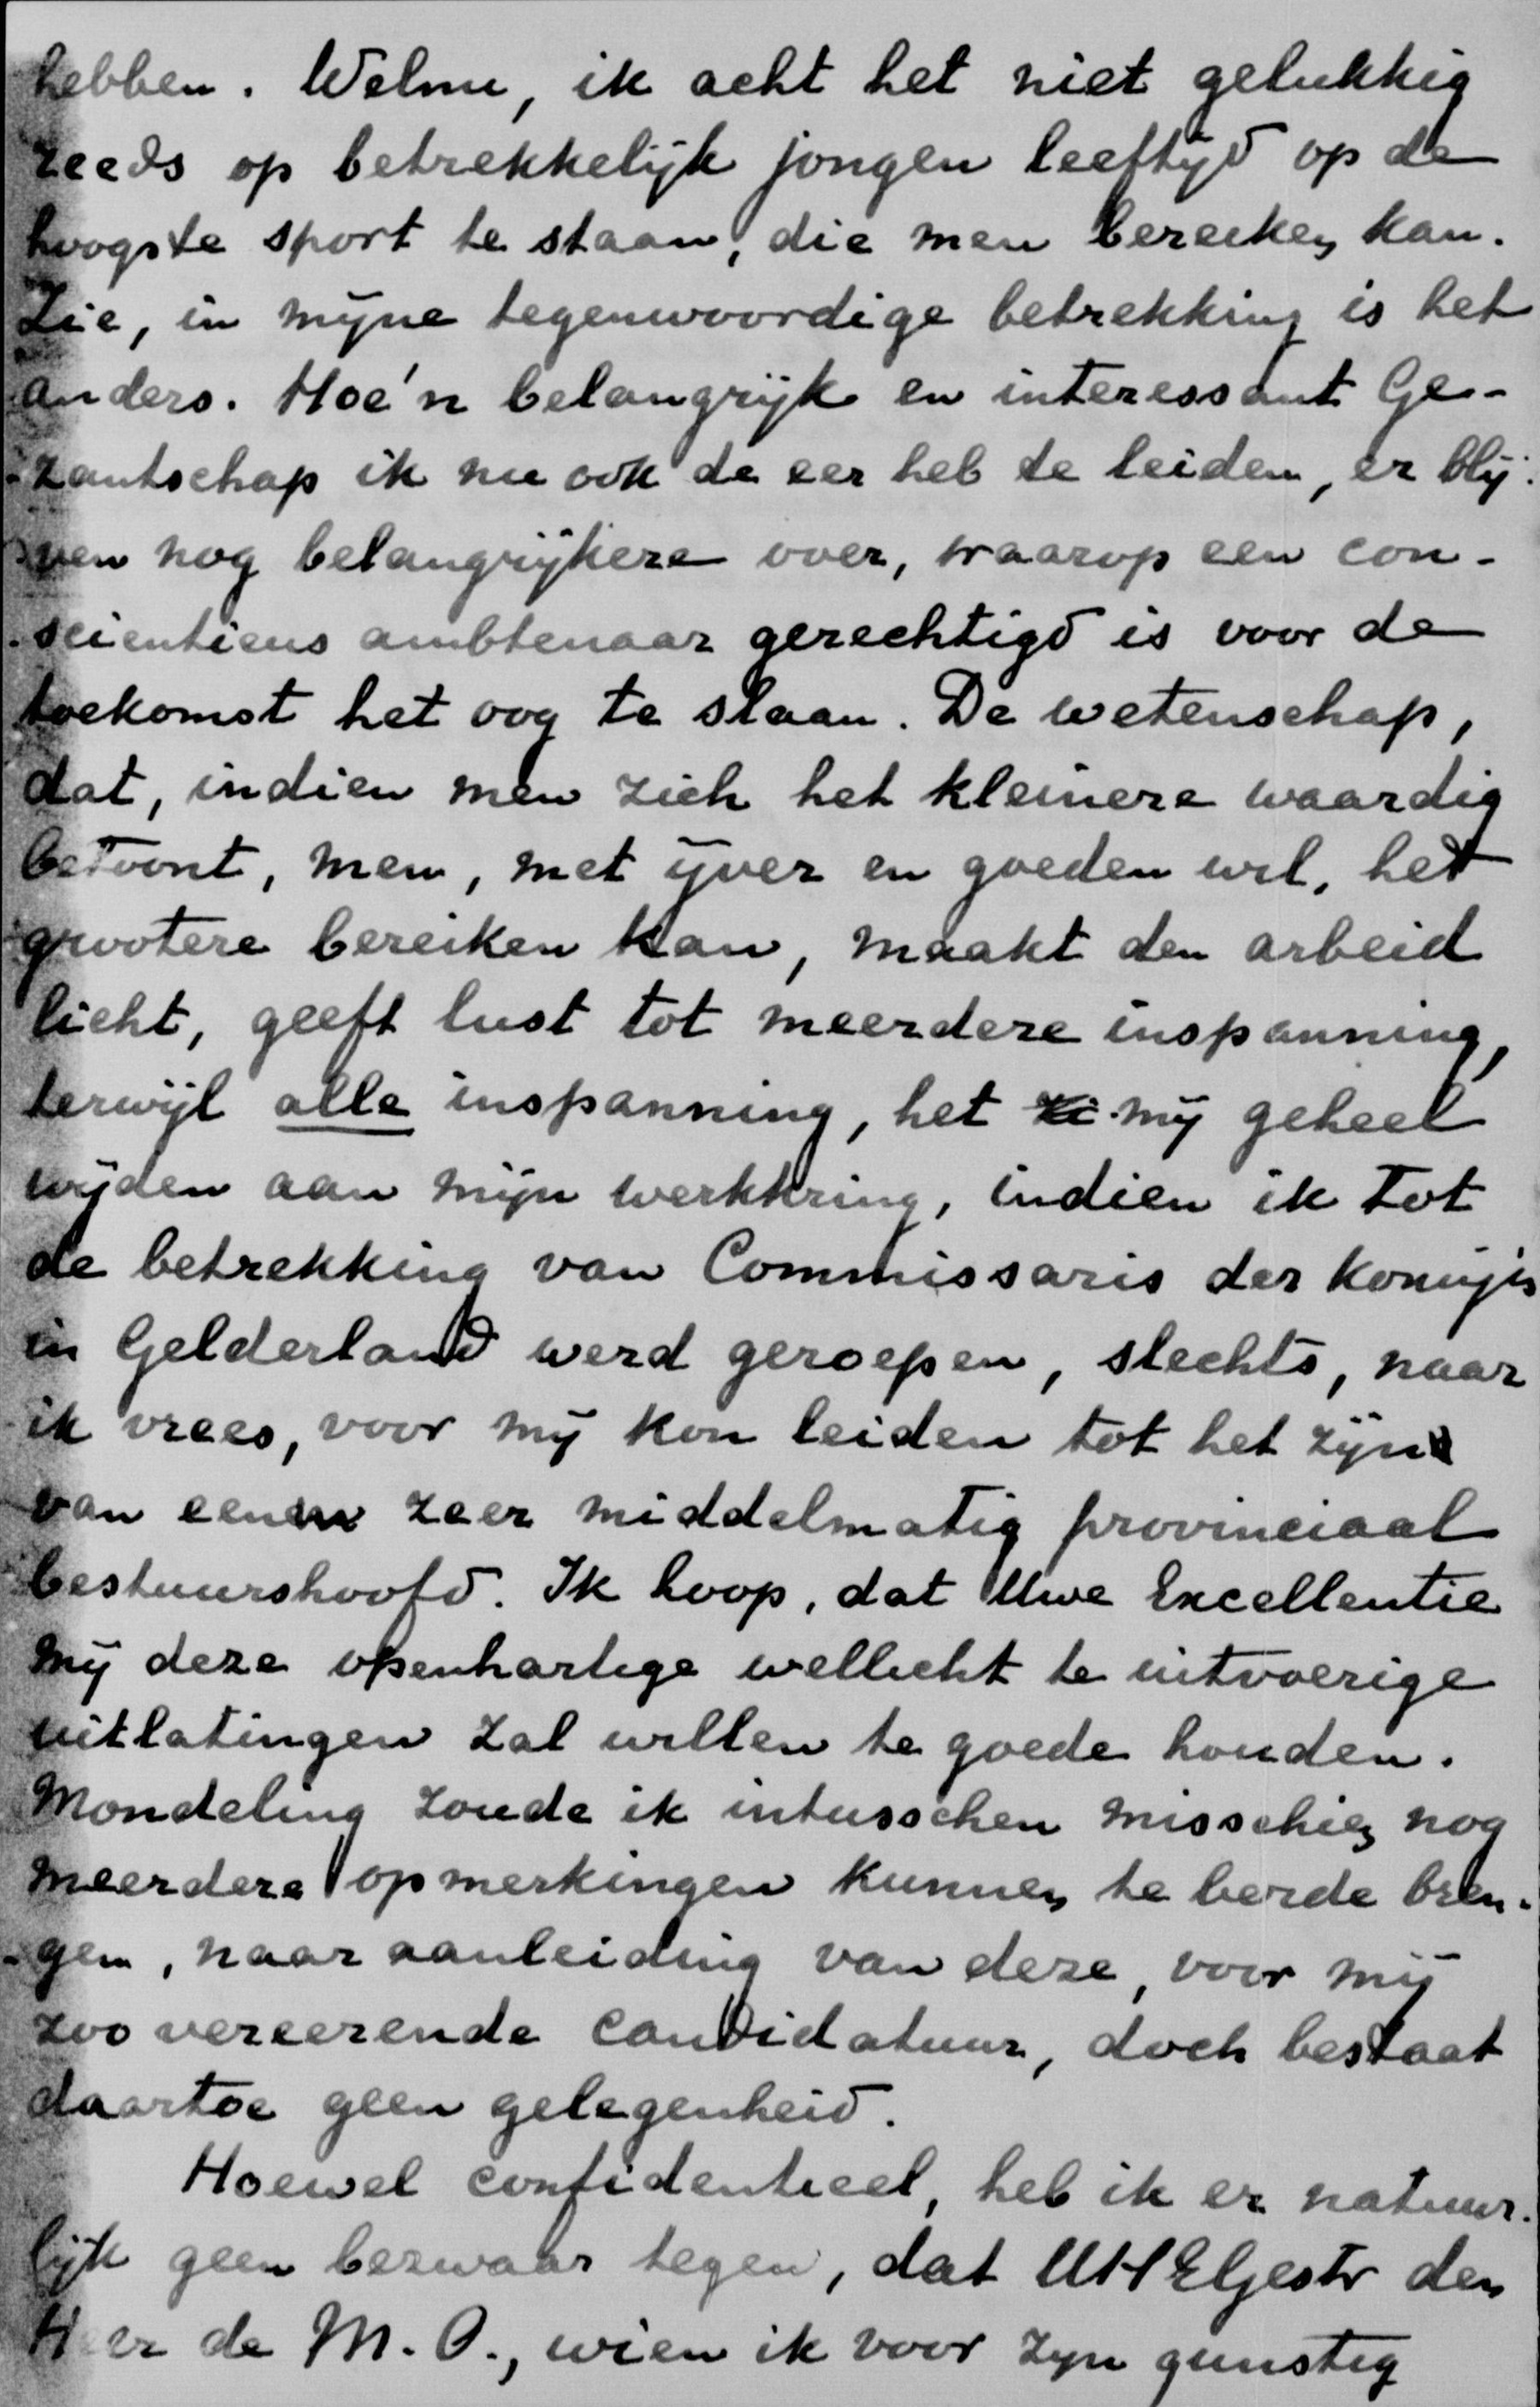 hebben. Welnu, ik acht het niet gelukkig
reeds op betrekkelijk jongen leeftijd op de
hoogste sport te staan, die men bereiken kan.
Zie, in mijne tegenwoordige betrekking is het
anders. Hoe'n belangrijk en interessant Ge-
-zantschap ik nu ook de eer heb te leiden, er blij-
ven nog belangrijkere over, waarop een con-
-scientieus ambtenaar gerechtigd is voor de
toekomst het oog te slaan. De wetenschap,
dat, indien men zich het kleinere waardig
betoont, men, met ijver en goeden wil, het
grootere bereiken kan, maakt den arbeid
licht, geeft lust tot meerdere inspanning,
terwijl alle inspanning, het mij geheel
wijden aan mijn werkkring, indien ik tot
de betrekking van Commissaris der Konigin
in Gelderland werd geroepen, slechts, naar
ik vrees, voor mij kon leiden tot het zijn
van eenen zeer middelmatig provinciaal
bestuurshoofd. Ik hoop, dat Uwe Excellentie
mij deze openhartige wellicht te uitvoerige
uitlatingen zal willen te goede houden.
Mondeling zoude ik intusschen misschien nog
meerdere opmerkingen kunnen te berde bren-
-gen, naar aanleiding van deze, voor mij
zoo vereerende candidatuur, doch bestaat
daartoe geen gelegenheid.
Hoewel confidentieel, heb ik er natuur-
lijk geen bezwaar tegen, dat UHElGestr den
Heer de M. O., wien ik voor zijn gunstig